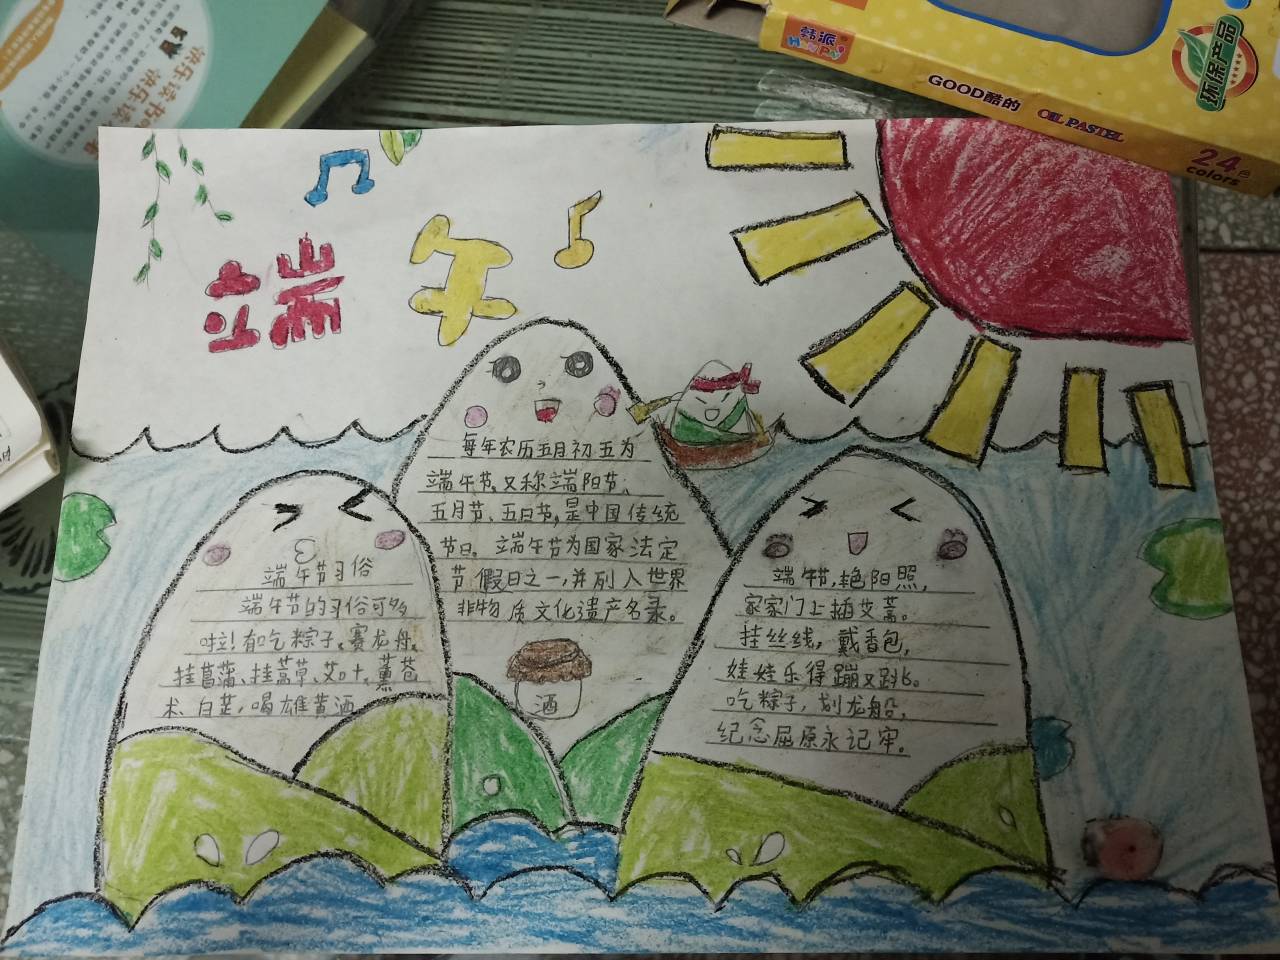 快乐读书
韩派
Happy
GOOD酷的
OIL PASTEL
24色
colors
环保产品
端午
每年农历五月初五为
端午节,又称端阳节、
五月节、五日节,是中国传统
节日。端午节为国家法定
节假日之一,并列入世界
非物质文化遗产名录。
酒
端午节习俗
端午节的习俗可多
啦!有吃粽子,赛龙舟,
挂菖蒲、挂蒿草、艾叶,薰苍
术、白芷,喝雄黄酒
端午节,艳阳照,
家家门上插艾蒿。
挂丝线,戴香包,
娃娃乐得蹦又跳。
吃粽子,划龙船,
纪念屈原永记牢。